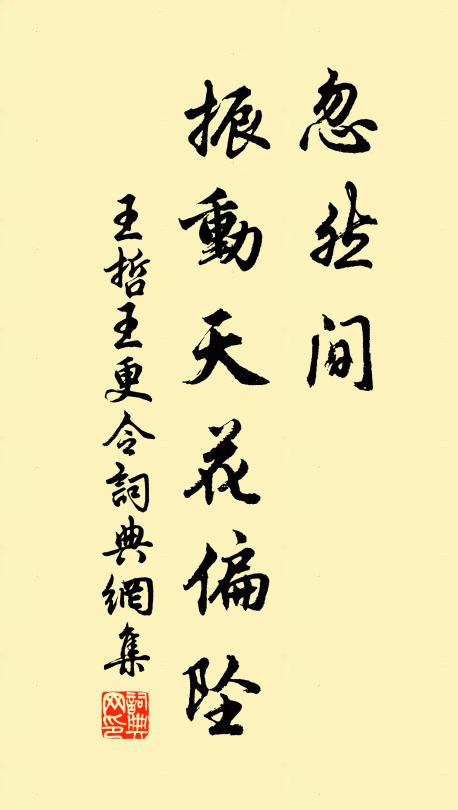 忽然间
振動天花偏坠
王哲王更令詞典網集
詞典
网印